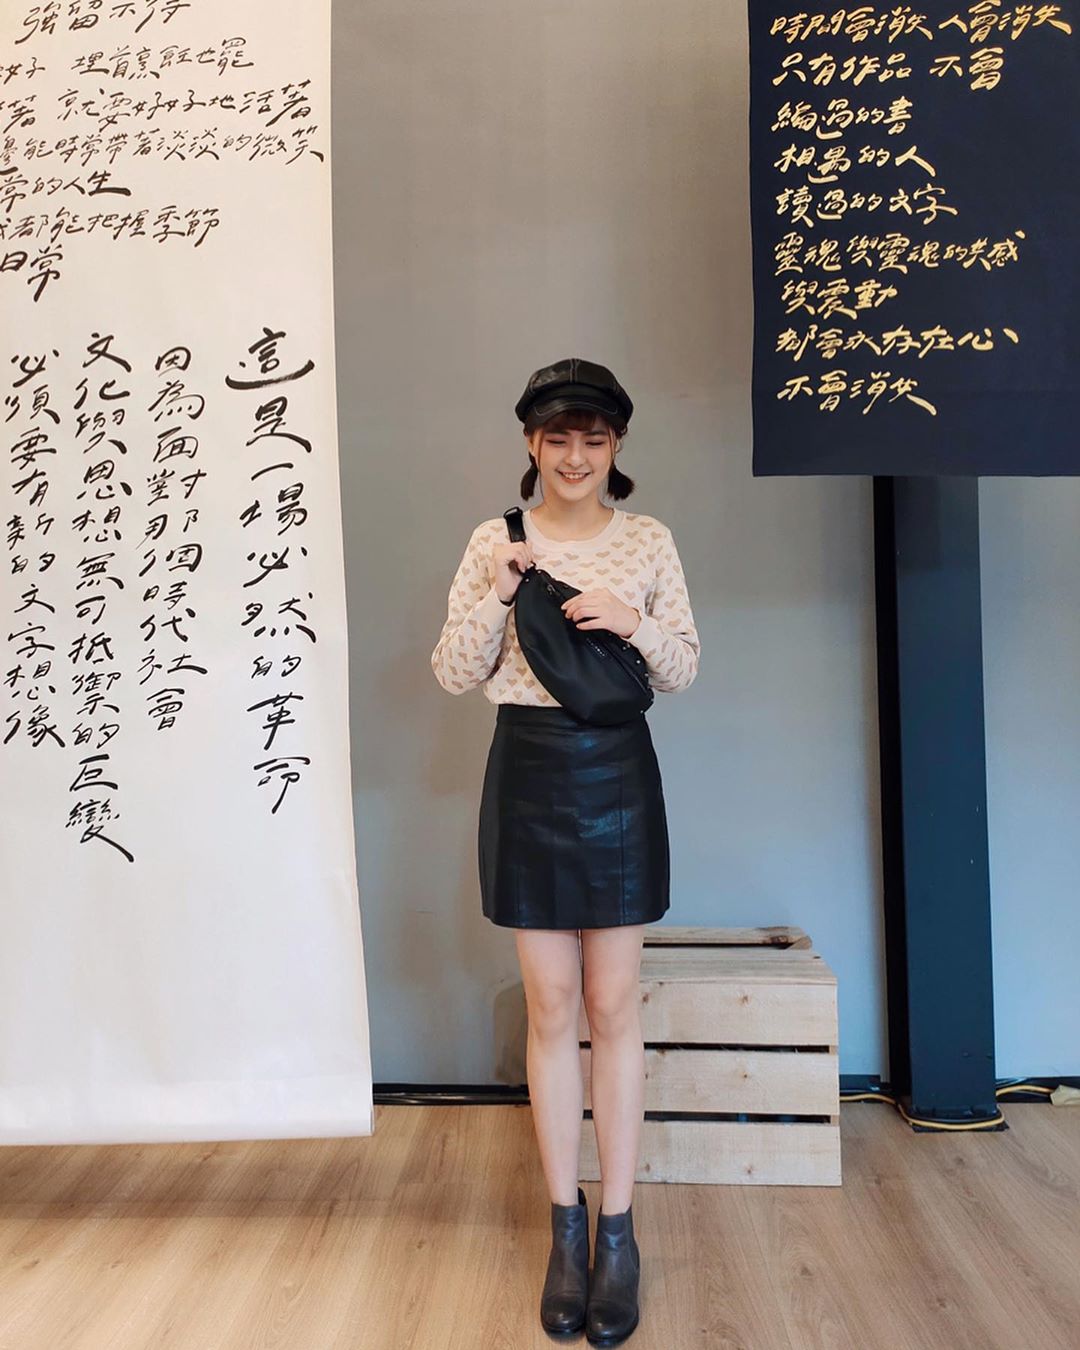 強留不得
好 埋首烹飪也罷
著 就要好好地活著
邊能時常帶著淡淡的微笑
常的人生
或都能把握季節
日常
這是一場必然的革命
因為面對那個時代社會
文化與思想無可抵禦的巨變
必須要有新的文字想像
時間會消失 人會消失
只有作品 不會
編過的書
相遇的人
讀過的文字
靈魂與靈魂的共感
與震動
都會永存在心
不會消失